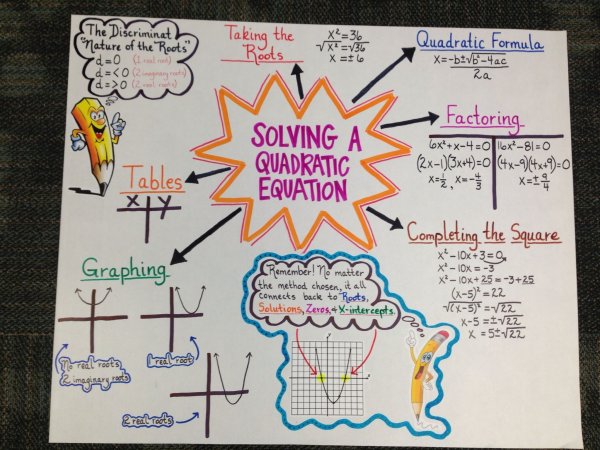 The Discriminat
"Nature of the Roots"
d=0 (1 real root)
d=<0 (2 imaginary roots)
d=>0 (2 real roots)
Taking the
Roots
x²=36
√x²=√36
x=±6
Quadratic Formula
x=-b±√b²-4ac
2a
Factoring
6x²+x-4=0
(2x-1)(3x+4)=0
x=1/2, x=-4/3
16x²-81=0
(4x-9)(4x+9)=0
x=±9/4
SOLVING A
QUADRATIC
EQUATION
Tables
x y
Completing the Square
x²-10x+3=0
x²-10x=-3
x²-10x+25=-3+25
(x-5)²=22
√(x-5)²=√22
x-5=±√22
x=5±√22
Graphing
No real roots
2 imaginary roots
1 real root
2 real roots
Remember! No matter
the method chosen, it all
connects back to Roots,
Solutions, Zeros, & X-intercepts.